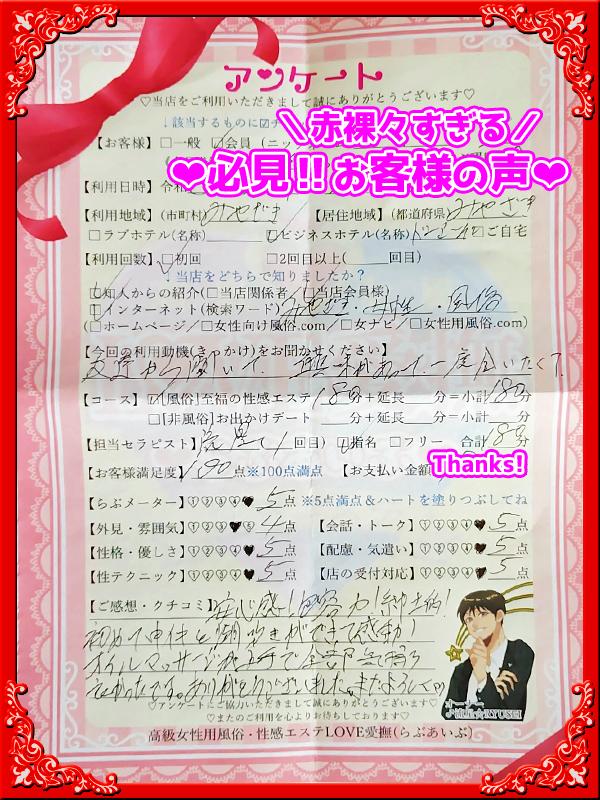 アンケート
♡当店をご利用いただきまして誠にありがとうございます♡
↓該当するものに☑チ
＼赤裸々すぎる／
【お客様】□一般 ☑会員 (ニッ
❤必見!!お客様の声❤
【利用日時】令和
【利用地域】(市町村)みやざき 【居住地域】(都道府県)みやざき
□ラブホテル(名称) ☑ビジネスホテル(名称) □ご自宅
【利用回数】☑初回 □2回目以上( 回目)
↓当店をどちらで知りましたか？
☑知人からの紹介(□当店関係者／□当店会員様)
☑インターネット(検索ワード)みやざき・女性・風俗
(□ホームページ／□女性向け風俗.com／□女ナビ／□女性用風俗.com)
【今回の利用動機(きっかけ)をお聞かせください】
友達から聞いて、興味があって、一度会いたくて。
【コース】☑[風俗]至福の性感エステ180分＋延長 分＝小計180分
□[非風俗]お出かけデート 分＋延長 分＝小計 分
【担当セラピスト】流星(1回目) ☑指名 □フリー 合計180分
【お客様満足度】100点※100点満点 【お支払い金額
Thanks!
【らぶメーター】①②③④♥5点 ※5点満点＆ハートを塗りつぶしてね
【外見・雰囲気】①②③♥⑤4点 【会話・トーク】①②③④♥5点
【性格・優しさ】①②③④♥5点 【配慮・気遣い】①②③④♥5点
【性テクニック】①②③④♥5点 【店の受付対応】①②③④♥5点
【ご感想・クチコミ】安心感!包容力!紳士的!
初めて中イキと潮吹きができて感動!
オイルマッサージも上手で全部気持ち
よかったです。ありがとうございました。またよろしく
♡アンケートにご協力いただきまして誠にありがとうございます♡
♡またのご利用を心よりお待ちしております♡
オーナー
♂流星☆RYUSEI
高級女性用風俗・性感エステLOVE愛撫(らぶあいぶ)